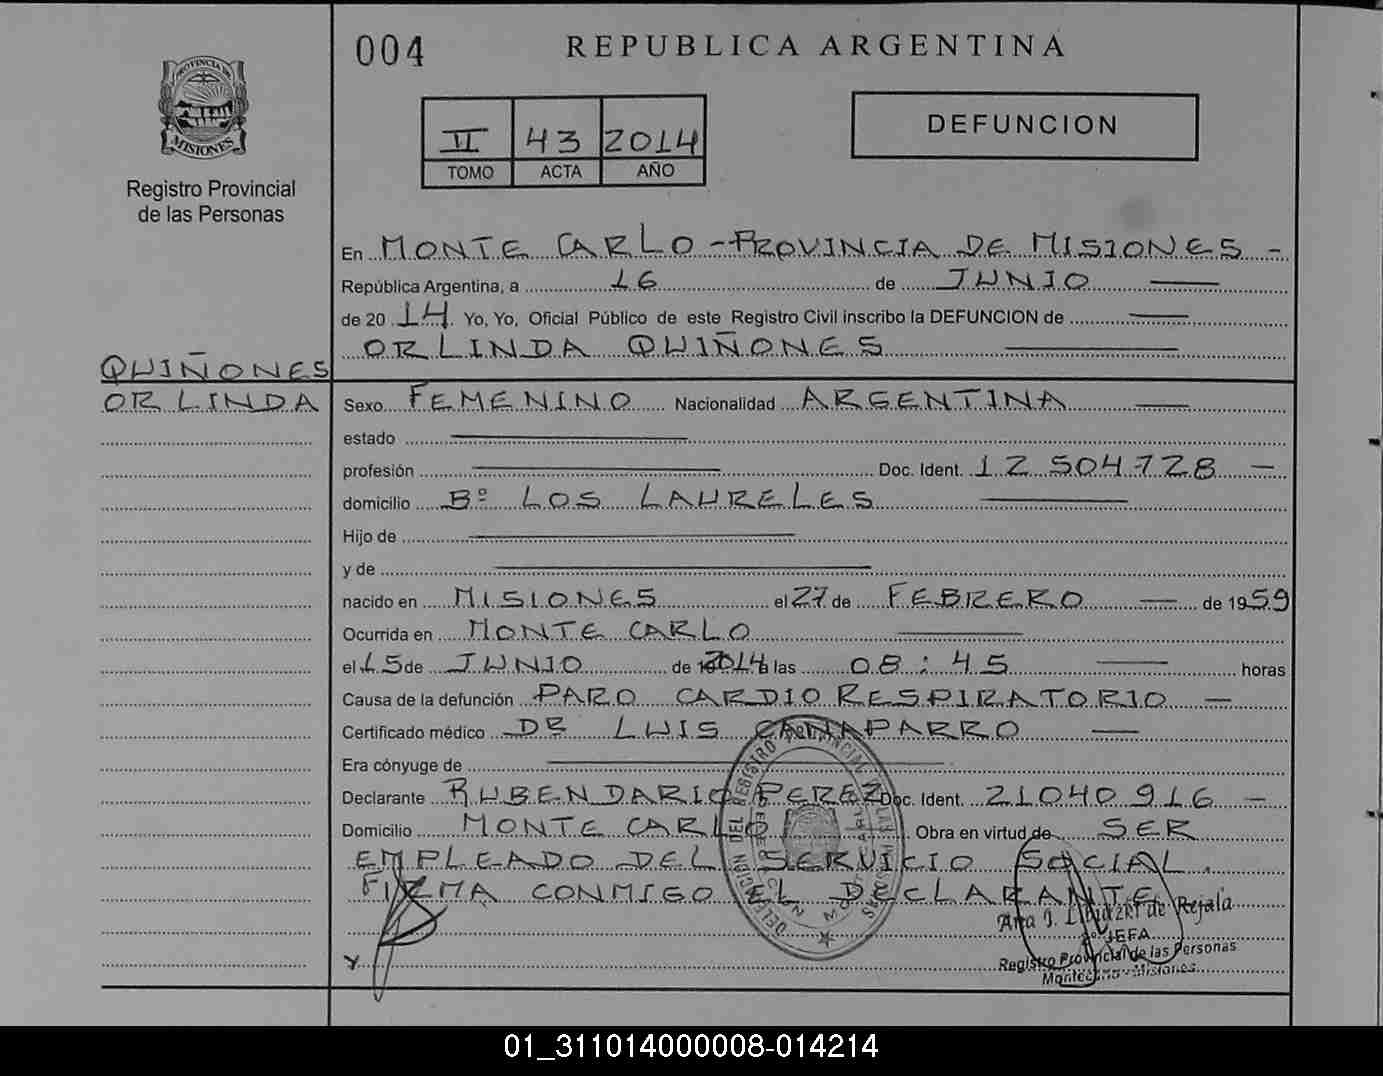 004
REPUBLICA ARGENTINA
PROVINCIA DE
MISIONES
Registro Provincial
de las Personas
II 43 2014
TOMO ACTA AÑO
DEFUNCION
En MONTE CARLO - PROVINCIA DE MISIONES -
República Argentina, a 16 de JUNIO
de 20 14 Yo, Yo, Oficial Público de este Registro Civil inscribo la DEFUNCION de
ORLINDA QUIÑONES
QUIÑONES
ORLINDA
Sexo FEMENINO Nacionalidad ARGENTINA
estado
profesión Doc. Ident. 12 504728
domicilio Bº LOS LAURELES
Hijo de
y de
nacido en MISIONES el 27 de FEBRERO de 1959
Ocurrida en MONTE CARLO
el 15 de JUNIO de 2014 a las 08:45 horas
Causa de la defunción PARO CARDIO RESPIRATORIO
Certificado médico DR LUIS CANAPARRO
Era cónyuge de
Declarante RUBEN DARIO PEREZ Doc. Ident. 21040916
Domicilio MONTE CARLO Obra en virtud de SER
EMPLEADO DEL SERVICIO SOCIAL.
FIRMA CONMIGO EL DECLARANTE
DELEGACION DEL REGISTRO PROVINCIAL DE LAS PERSONAS
de Rejala
JEFA
Registro Provincial de las Personas
Montecarlo - Misiones
01_311014000008-014214